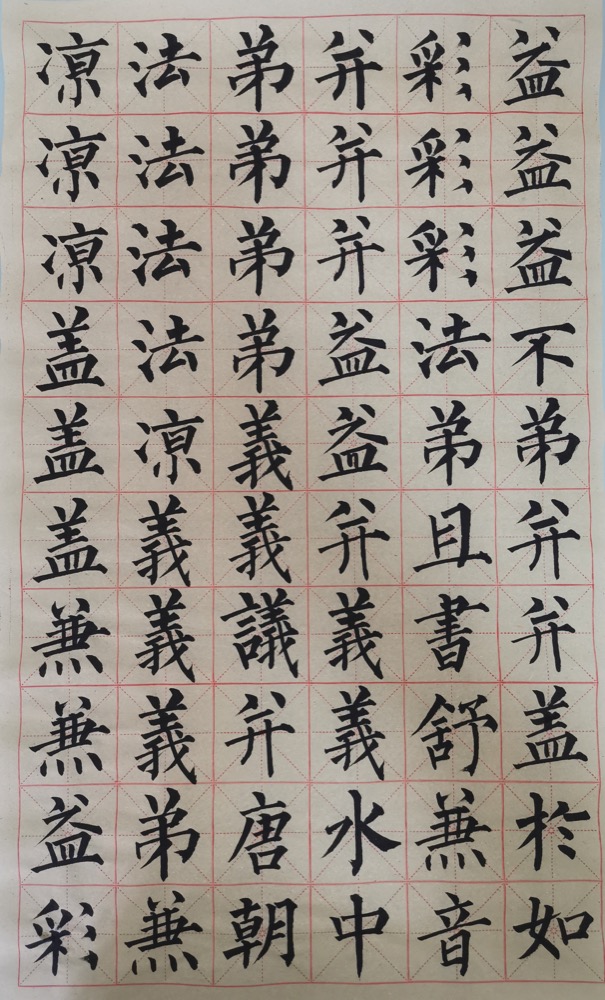 益益益不弟并并盖於如
彩彩彩法弟且書舒兼音
并并并益益并義義水中
弟弟弟弟義義議并唐朝
法法法法凉義義義弟兼
凉凉凉盖盖盖兼兼益彩